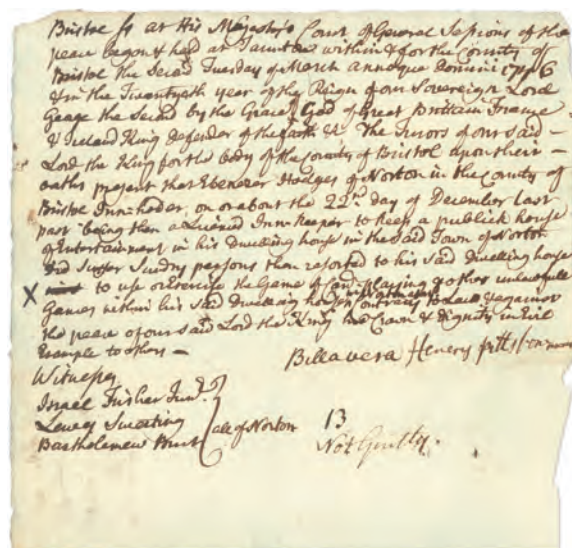 Bristol ss at His Majesty's Court of General Sessions of the
peace begun & held at Taunton within & for the County of
Bristol the Second Tuesday of March Annoque Domini 1746
& in the Twentyeth year of the Reign of our Sovereign Lord
George the Second by the Grace of God of Great Brittain France
& Ireland King Defender of the faith &c The Jurors of our said
Lord the King for the body of the County of Bristol upon their
oaths present that Ebenezer Hodges of Norton in the County of
Bristol Inn-holder, on or about the 22nd day of December last
past being then a Licensed Inn-keeper to keep a publick house
of Entertainment in his Dwelling house in the said Town of Norton
Did Suffer Sundry persons then resorted to his said Dwelling house
X to use or Exercise the Game of Card-playing & other unlawfull
Games within his said Dwelling house Contrary to Law & against
the peace of our said Lord the King his Crown & Dignity in Evil
Example to others —
Billa vera Henery pitts
Witnesses
Israel Fisher Junr.
Lewes Sweeting
Bartholomew Burt
all of Norton
13
Not Guilty.